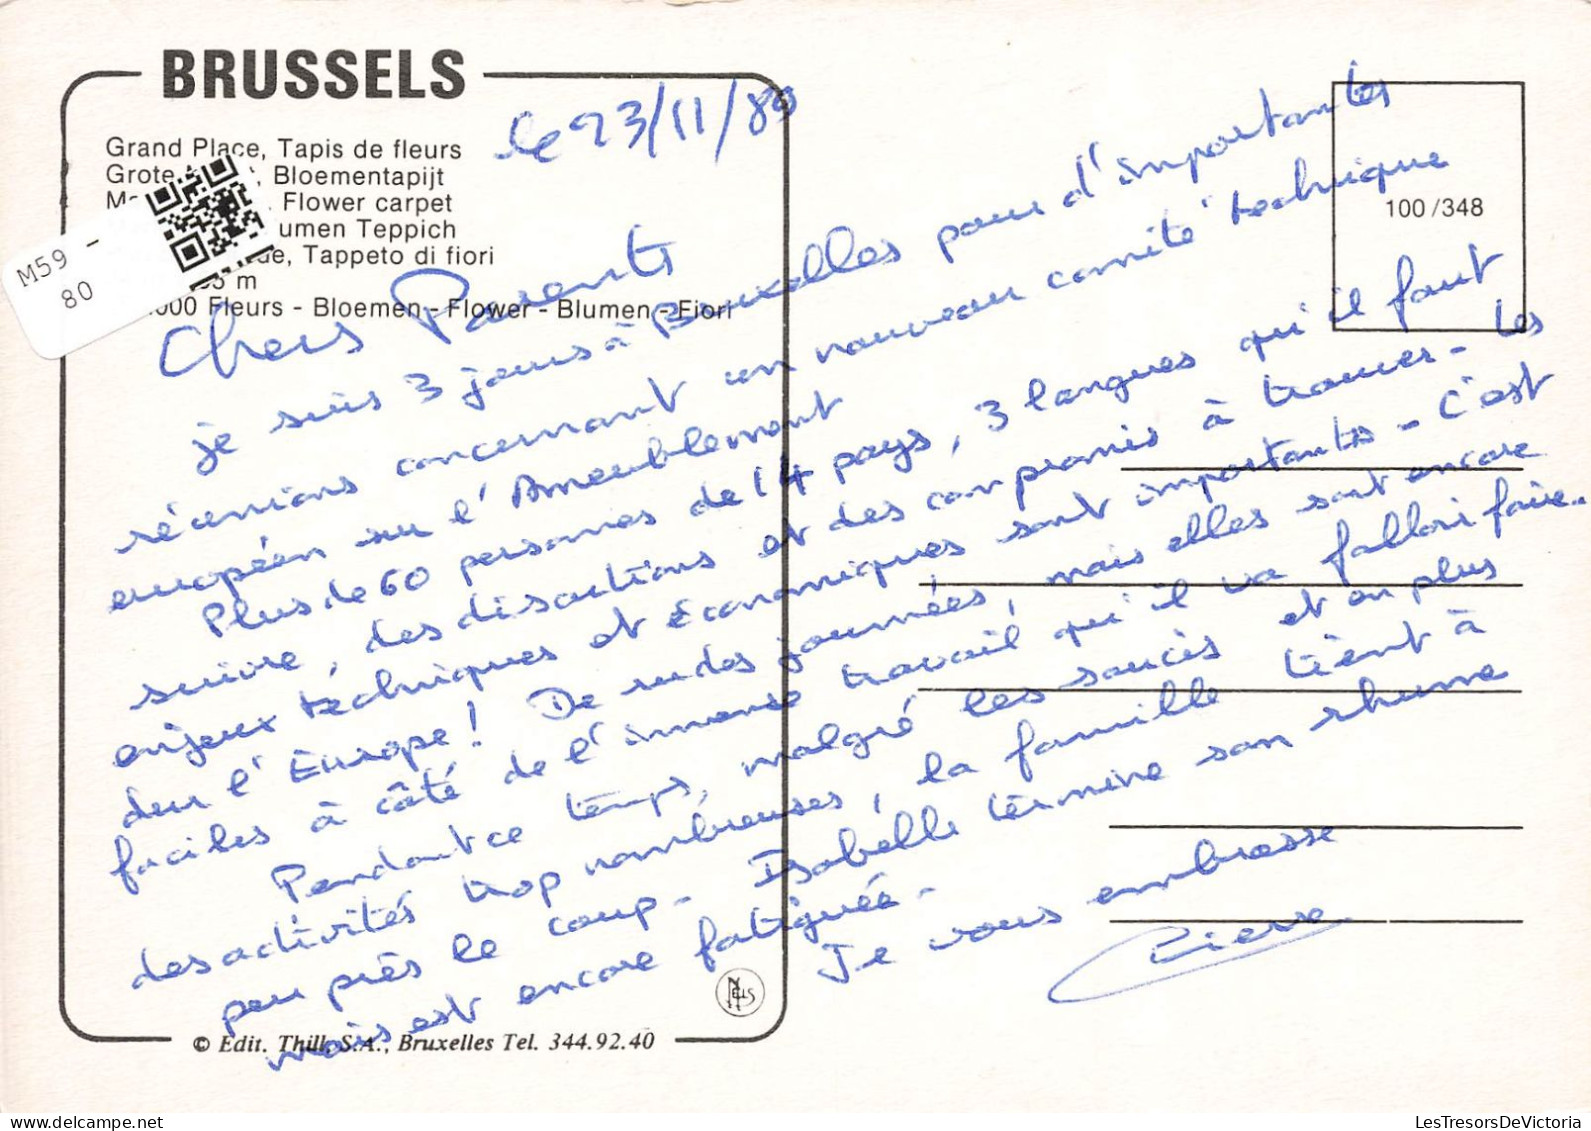 BRUSSELS
Grand Place, Tapis de fleurs
Grote, Bloementapijt
Flower carpet
umen Teppich
Tappeto di fiori
m
000 Fleurs - Bloemen - Flower - Blumen - Fiori
M59 -
80
100/348
le 23/11/89
Chers Parents
je suis 3 jours à Bruxelles pour d'importantes
réunions concernant un nouveau comité technique
européen sur l'Ameublement
Plus de 60 personnes de 14 pays, 3 langues qu'il faut
suivre, des discutions et des compromis à trouver - les
enjeux techniques et économiques sont importants - C'est
dur l'Europe! De rudes journées, mais elles sont encore
faciles à côté de l'immense travail qu'il va falloir faire..
Pendant ce temps, malgré les soucis et en plus
des activités trop nombreuses, la famille tient à
peu près le coup - Isabelle termine son rhume
mais est encore fatiguée -
Je vous embrasse
Pierre
NELS
© Edit. Thill, S.A., Bruxelles Tel. 344.92.40
LesTresorsDeVictoria